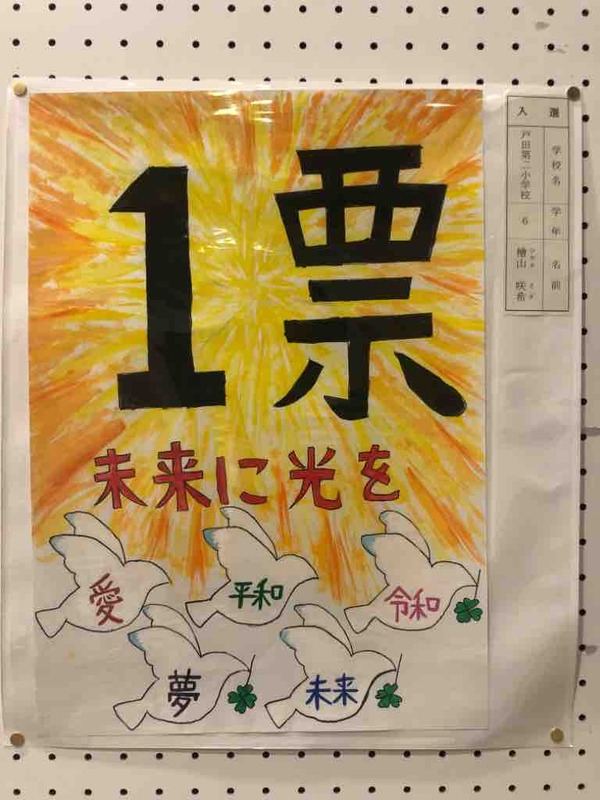 1票
未来に光を
愛
平和
令和
夢
未来
入選
学校名
学年
名前
戸田第二小学校
6
檜山 咲希